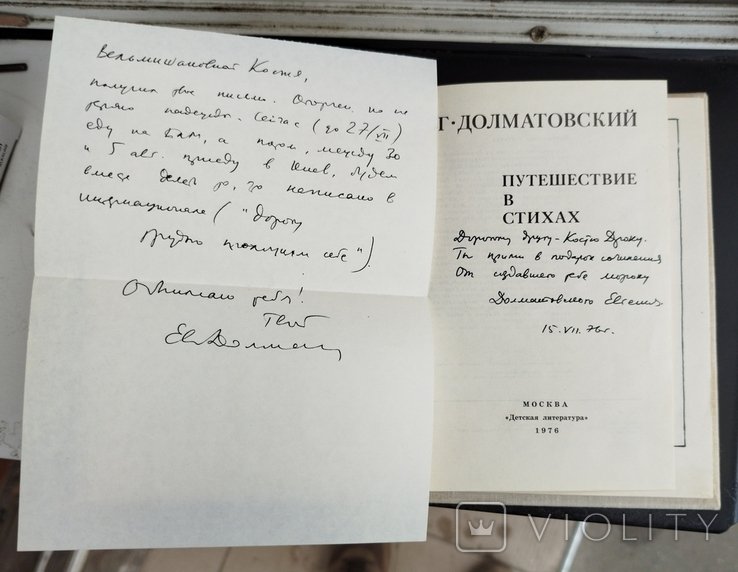 Вельмишановний Костя,
получил две письма. Огорчен, но не
теряю надежды. Сейчас (до 27/VII)
еду на БАМ, а пото, между 30
и 5 авг. приеду в Киев, будем
вместе делать то, что написано в
интернационале ("Дорогу
грудью проложим себе").
Обнимаю тебя!
Твой
Ев Долмат
Г·ДОЛМАТОВСКИЙ
ПУТЕШЕСТВИЕ
В
СТИХАХ
Дорогому другу - Костю Дроку.
Ты прими в подарок сочинения
От издавшего тебе мороку
Долматовского Евгения.
15.VII.76г.
МОСКВА
«Детская литература»
1976
VIOLITY